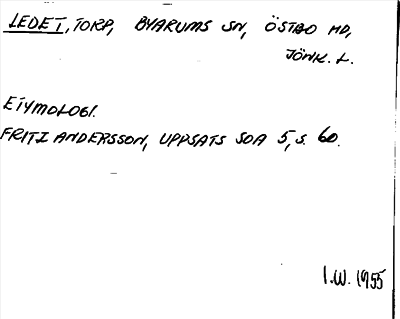 LEDET, TORP, BYARUMS SN, ÖSTBO HD,
JÖNK. L.
ETYMOLOGI.
FRITZ ANDERSSON, UPPSATS SOA 5, S. 60.
I.W. 1955